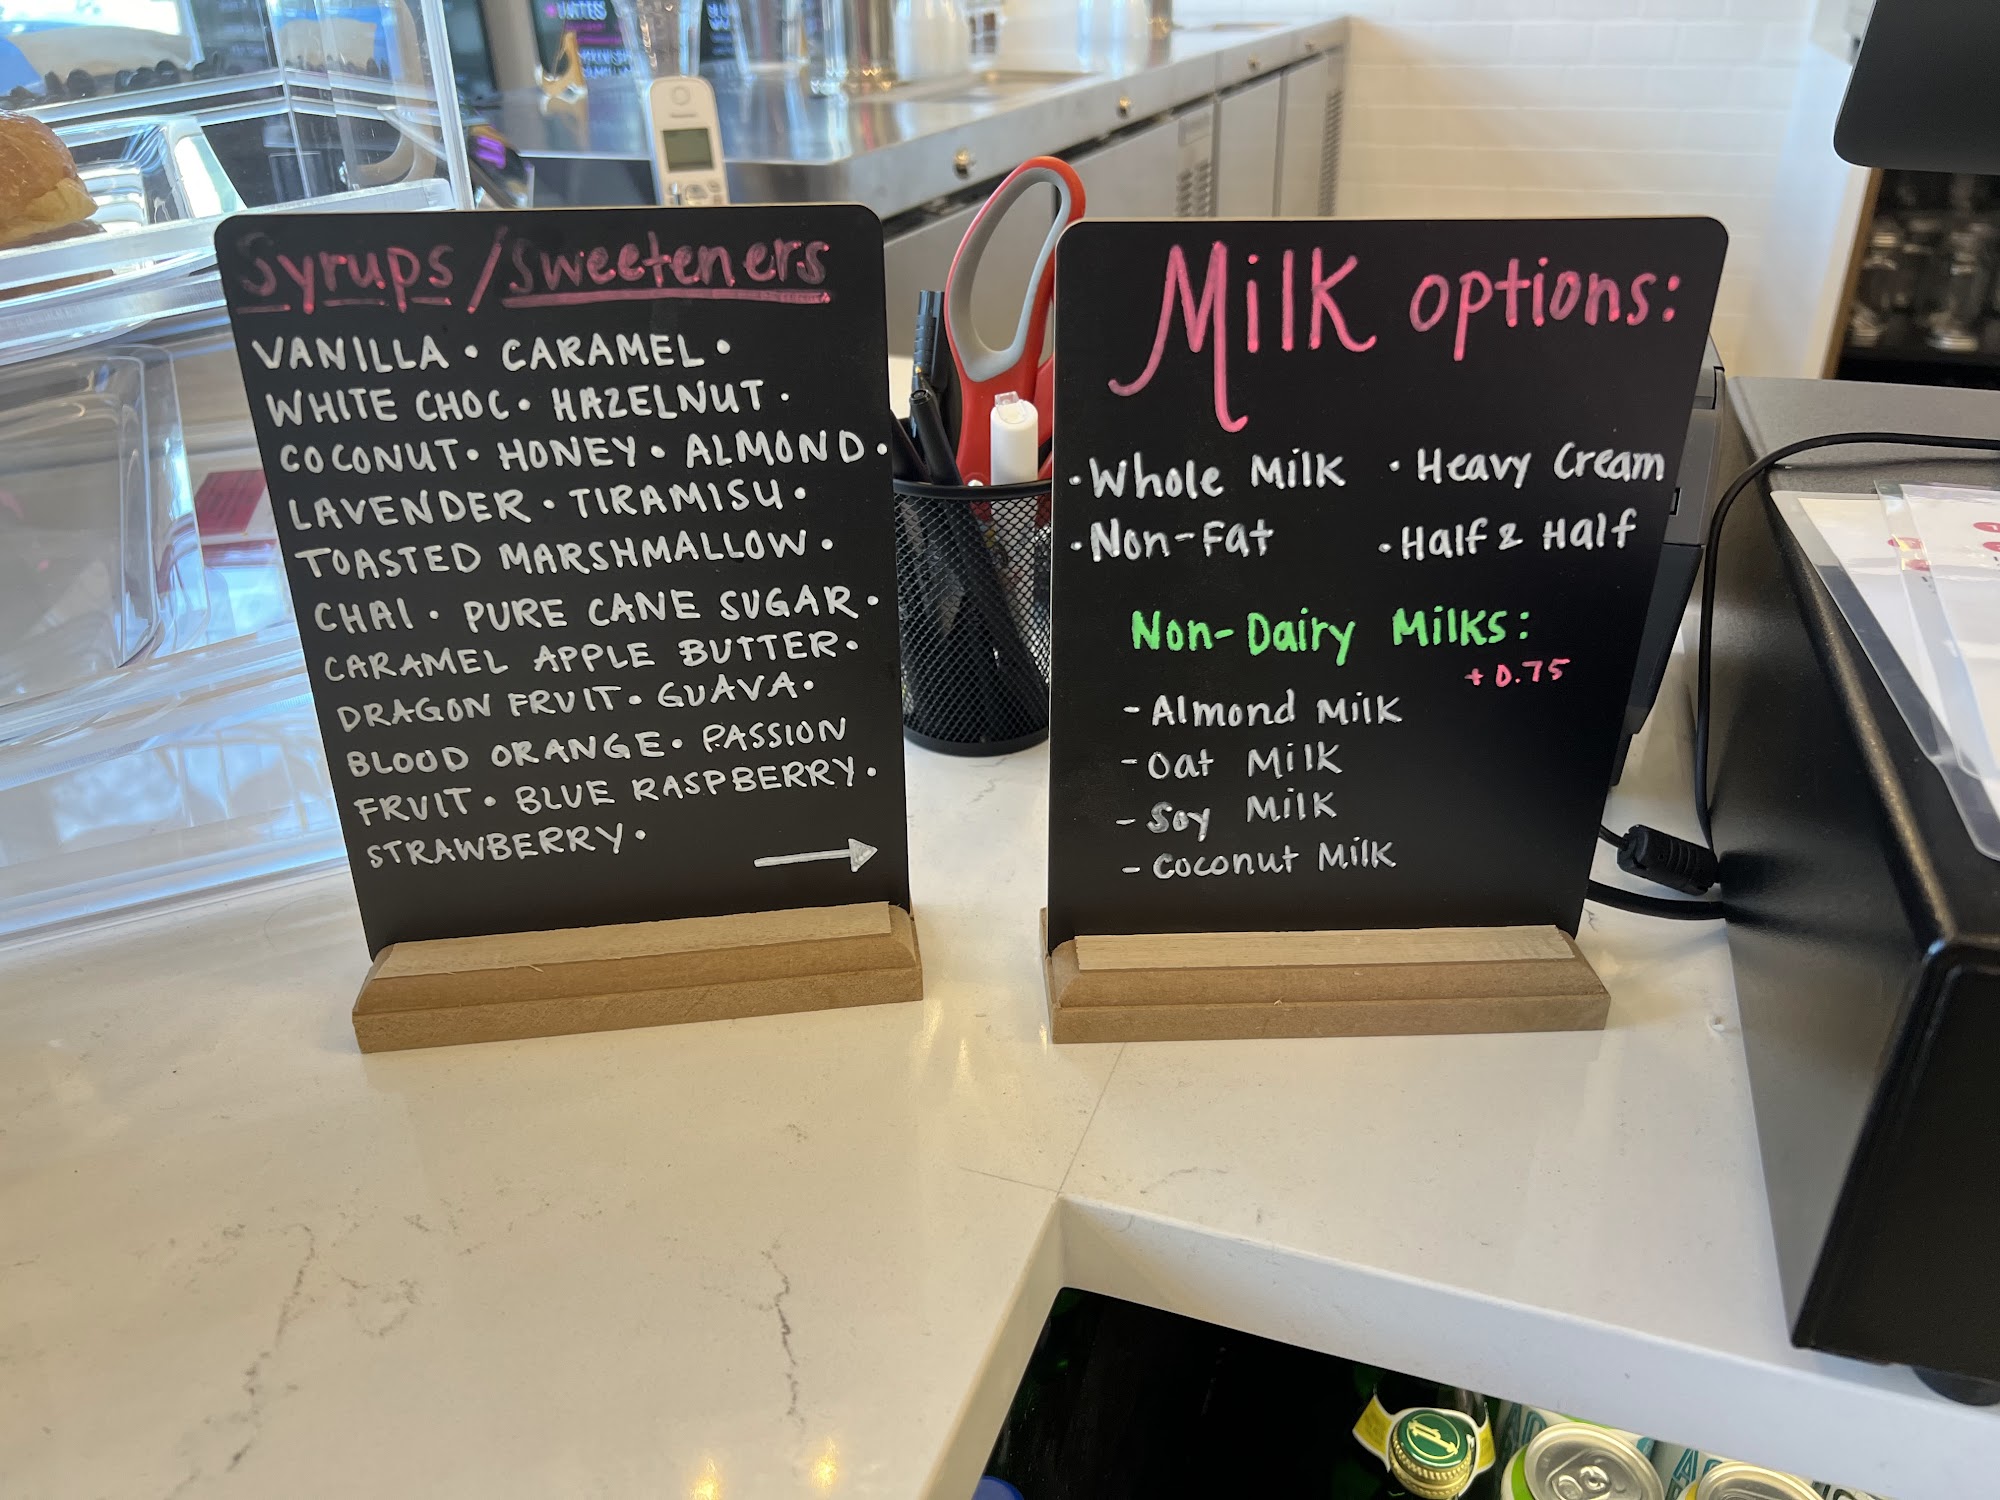 Syrups/Sweeteners
VANILLA • CARAMEL •
WHITE CHOC • HAZELNUT •
COCONUT • HONEY • ALMOND •
LAVENDER • TIRAMISU •
TOASTED MARSHMALLOW •
CHAI • PURE CANE SUGAR •
CARAMEL APPLE BUTTER •
DRAGON FRUIT • GUAVA •
BLOOD ORANGE • PASSION
FRUIT • BLUE RASPBERRY •
STRAWBERRY •
Milk options:
• Whole Milk • Heavy Cream
• Non-Fat • Half & Half
Non-Dairy Milks:
+ 0.75
- Almond Milk
- Oat Milk
- Soy Milk
- Coconut Milk